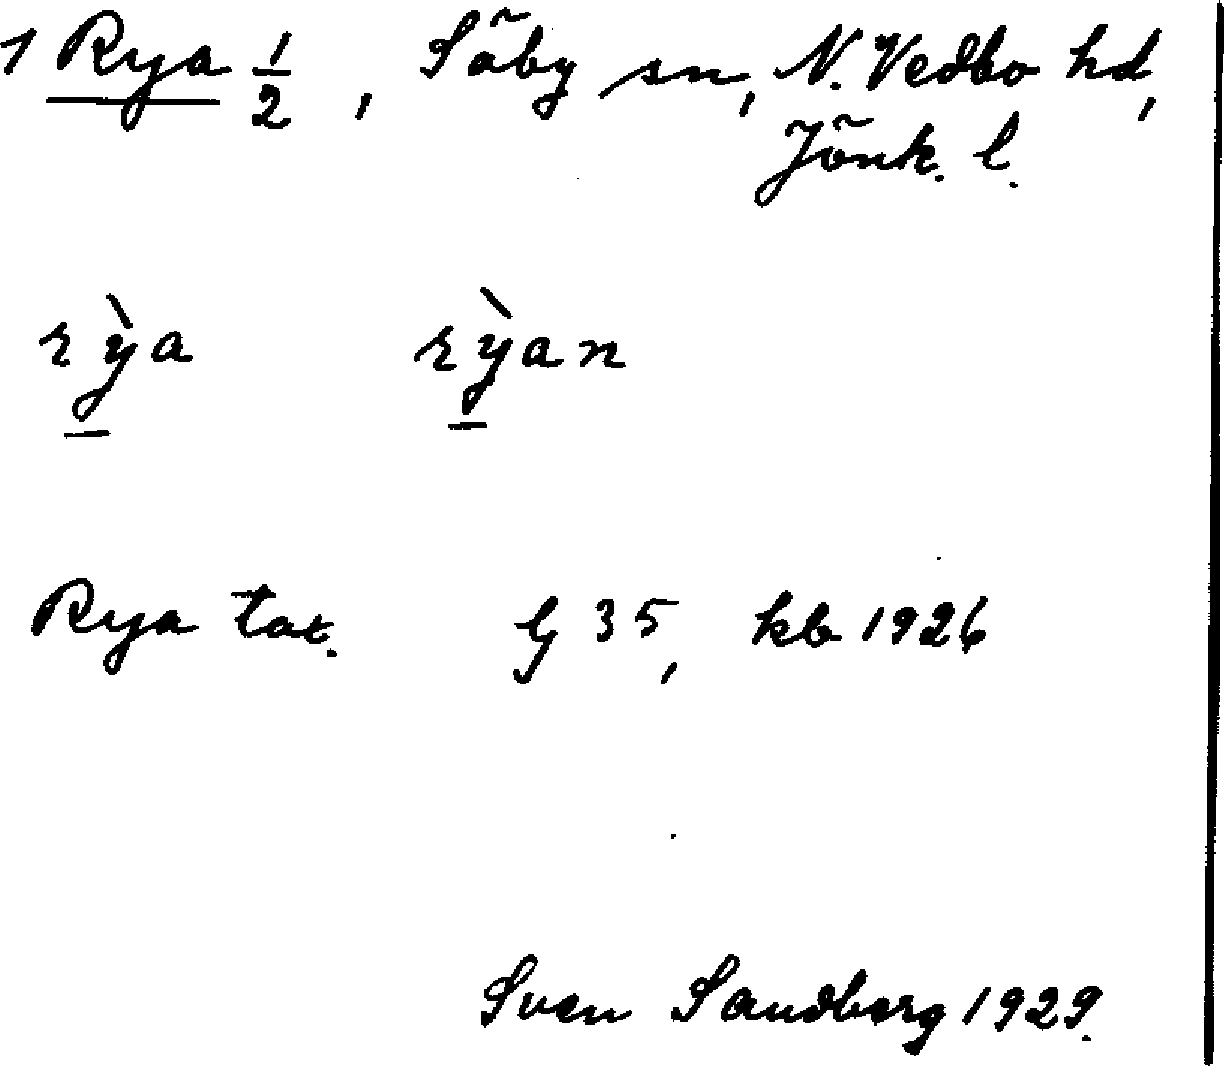 1 Rya 1/2, Säby sn, N. Vedbo hd,
Jönk. l.
rỳa rỳan
Rya tat. G 35, kb 1926
Sven Sandberg 1929.